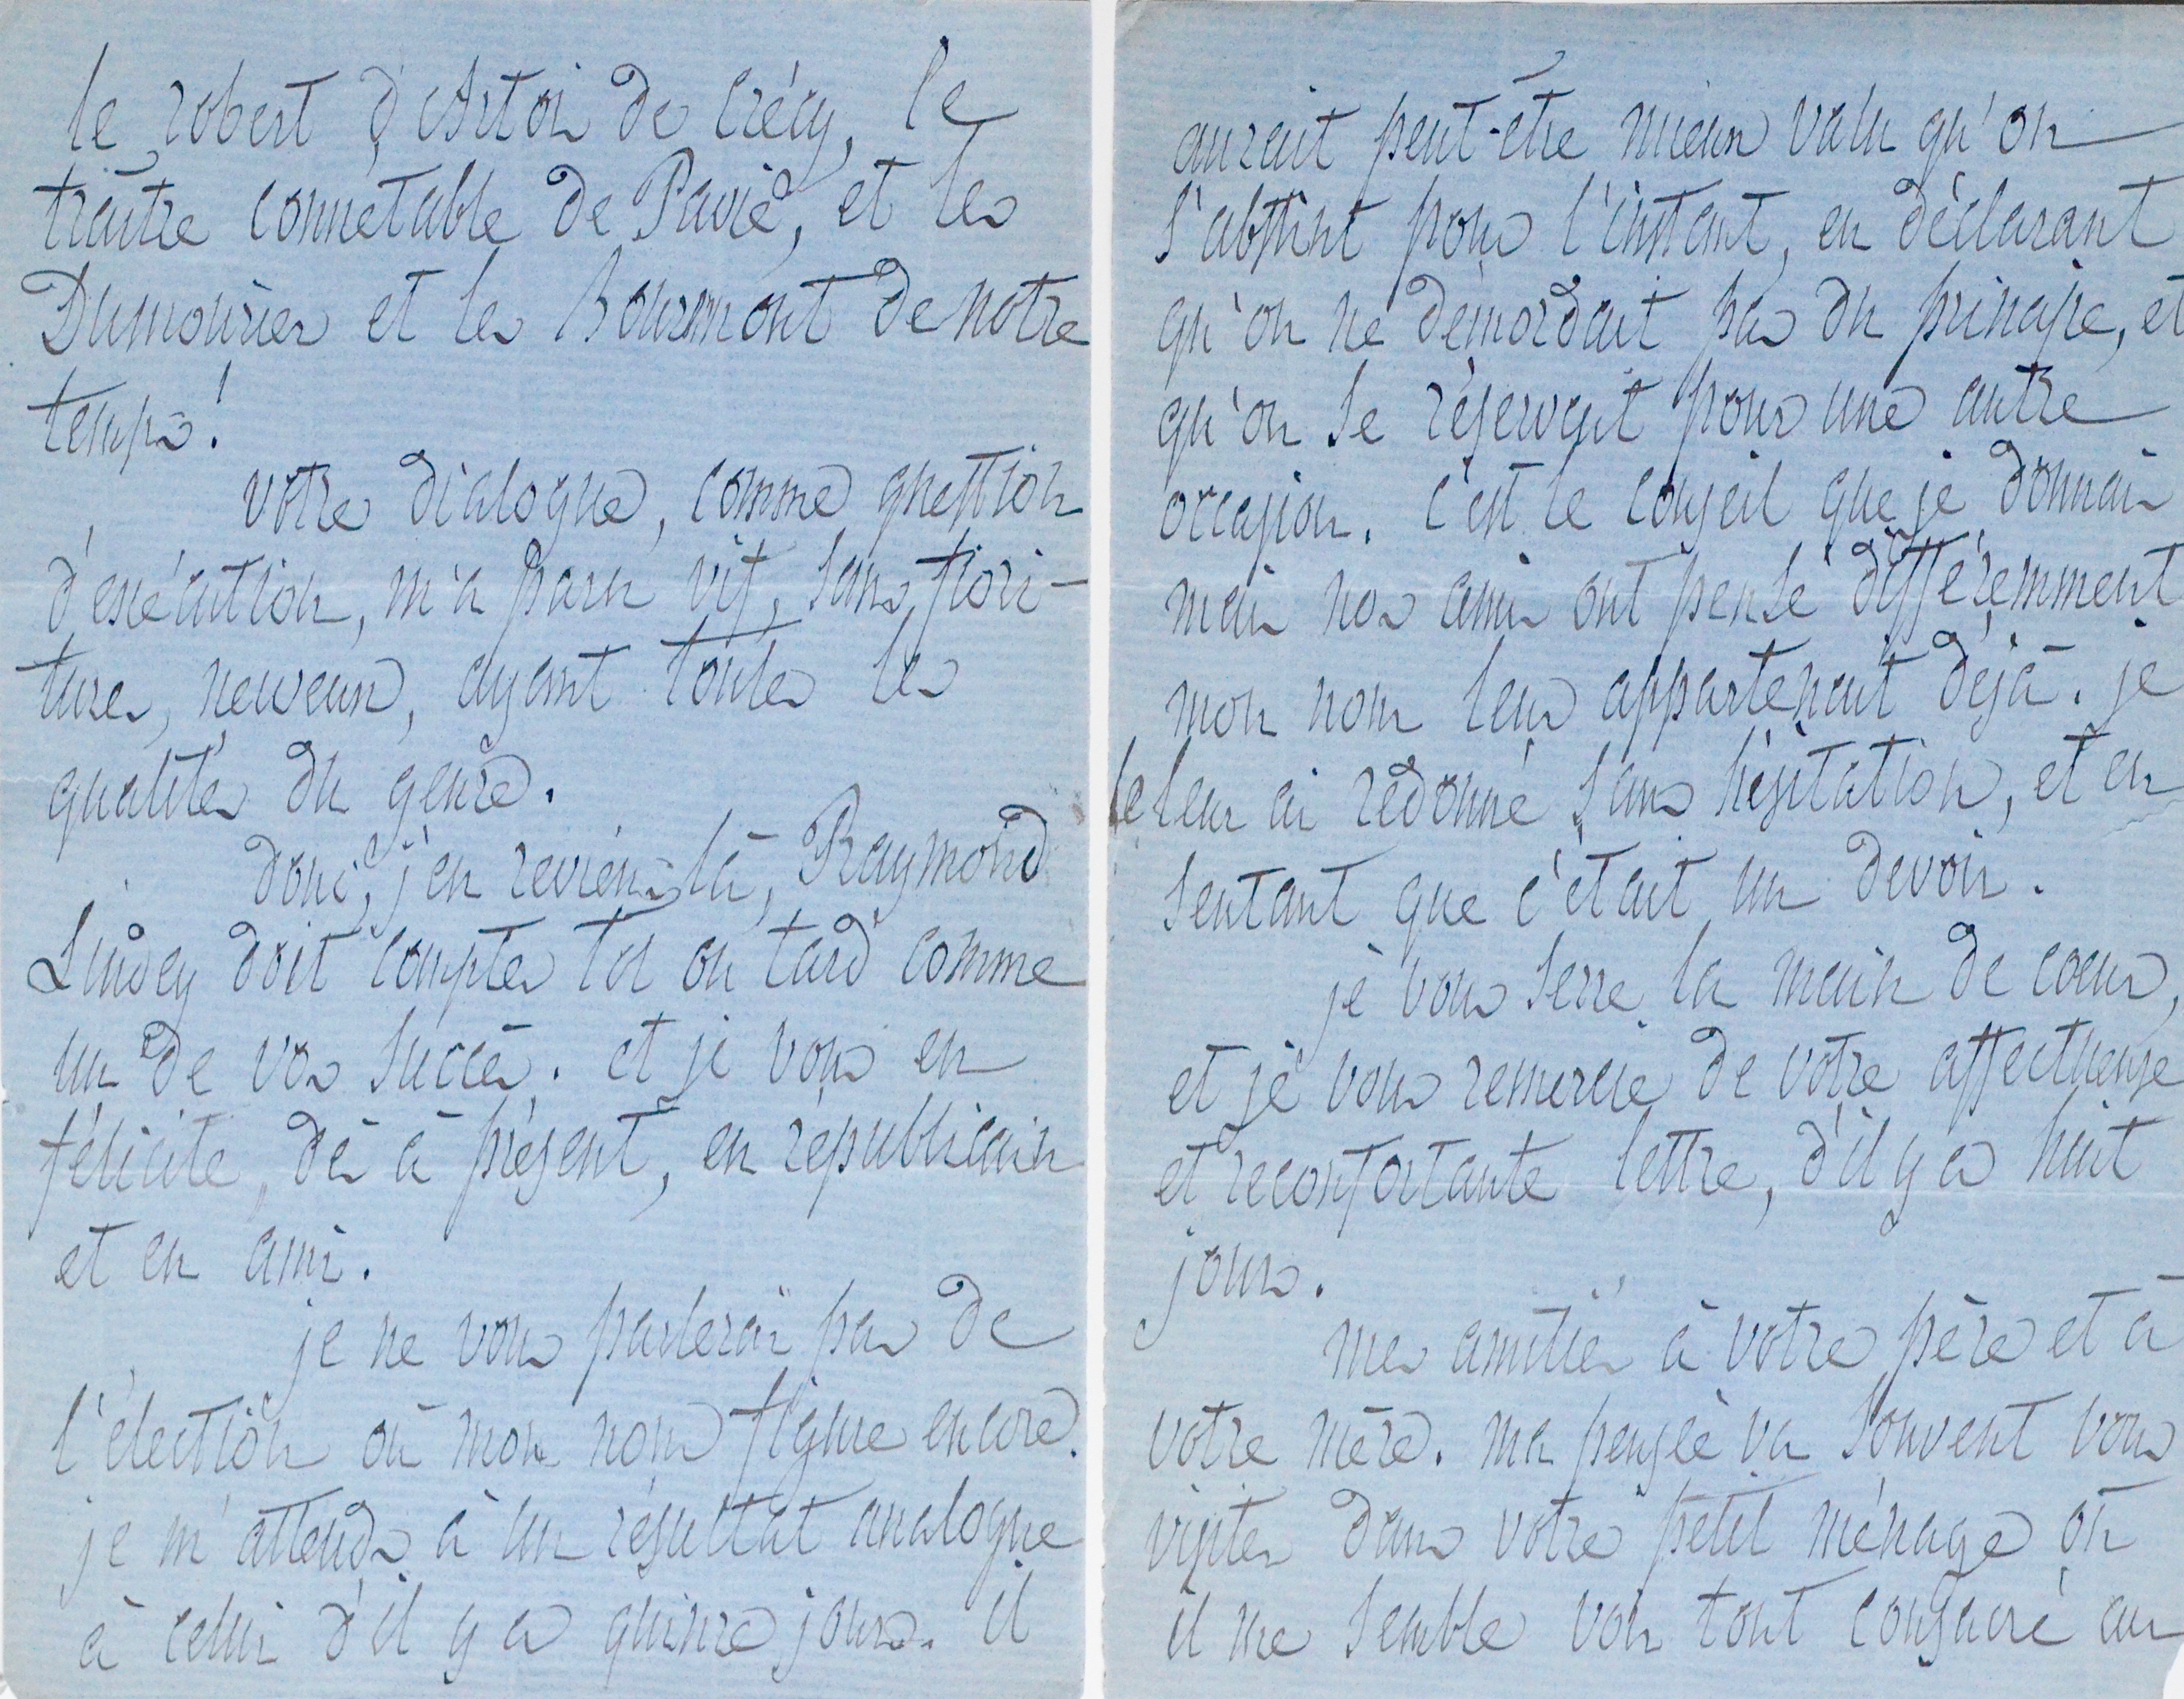 le robert d'Artois de Crécy, le
traître connétable de Pavie, et les
Dumouriez et les Bourmont de notre
temps!
votre dialogue, comme question
d'exécution, m'a paru vif, sans fiori-
tures, nerveux, ayant toutes les
qualités du genre.
donc, j'en reviens là, Raymond
Lindey doit compter tôt ou tard comme
un de vos succès. et je vous en
félicite, dès à présent, en républicain
et en ami.
je ne vous parlerai pas de
l'élection où mon nom figure encore.
je m'attends à un résultat analogue
à celui d'il y a quinze jours. il
aurait peut-être mieux valu qu'on
s'abstînt pour l'instant, en déclarant
qu'on ne démordait pas du principe, et
qu'on se réservait pour une autre
occasion. c'est le conseil que je donnais
mais nos amis ont pensé différemment
mon nom leur appartenait déjà. je
le leur ai redonné sans hésitation, et en
sentant que c'était un devoir.
je vous serre la main de coeur,
et je vous remercie de votre affectueuse
et reconfortante lettre, d'il y a huit
jours.
mes amitiés à votre père et à
votre mère. ma pensée va souvent vous
visiter dans votre petit ménage où
il me semble voir tout consacré au